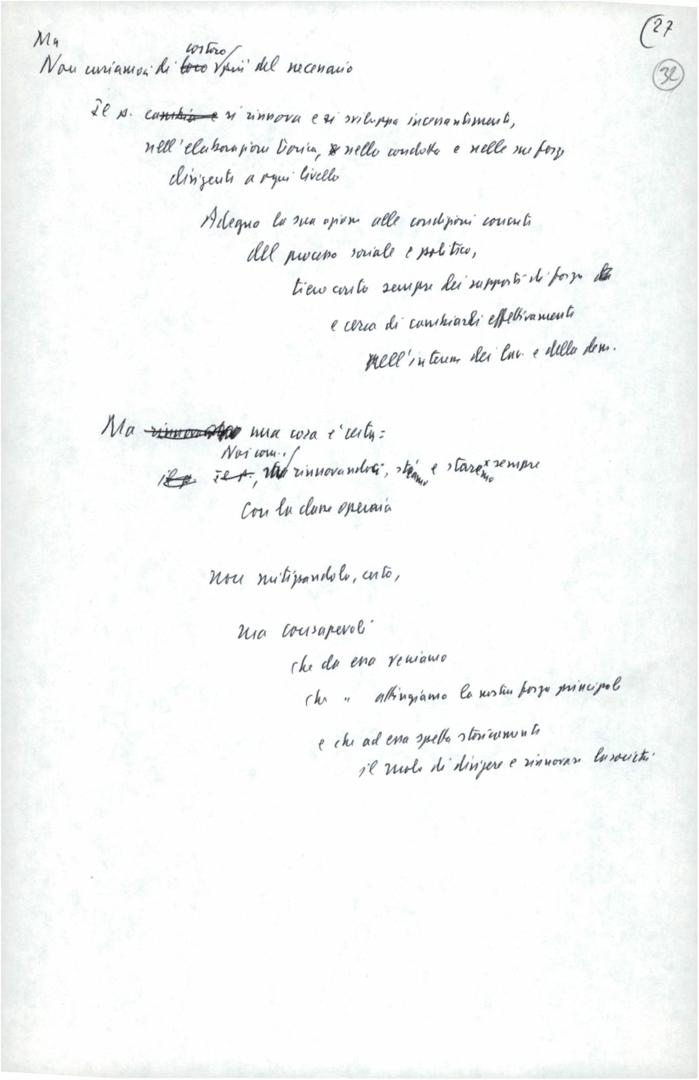 (27
32
Ma
costoro
Non curiamoci di loro più del necessario
Il p. cambia e si rinnova e si sviluppa incessantemente,
nell'elaborazione teorica, nella condotta e nelle sue forze
dirigenti a ogni livello
Adegua la sua azione alle condizioni concrete
del processo sociale e politico,
tiene conto sempre dei rapporti di forza
e cerca di cambiarli effettivamente
nell'interesse dei lav. e della dem.
Ma una cosa è certa:
Noi com.
il p. Il p., rinnovandoci, stiamo e staremo sempre
con la classe operaia
non mitizzandola, certo,
ma consapevoli
che da essa veniamo
che " attingiamo la nostra forza principale
e che ad essa spetta storicamente
il ruolo di dirigere e rinnovare la società